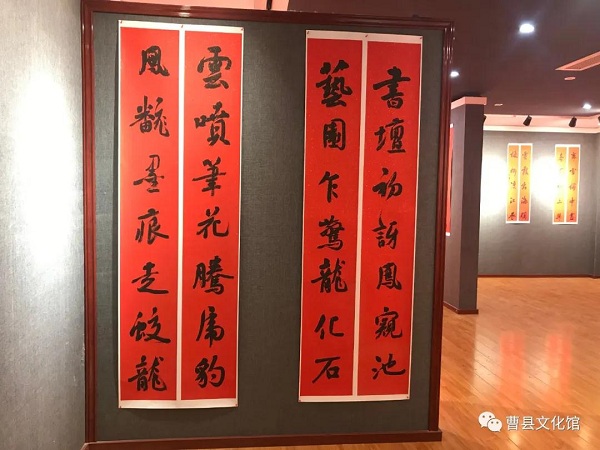 書壇初訝鳳窺池
藝圃乍驚龍化石
雲噴筆花騰虎豹
風翻墨痕走蛟龍
曹县文化馆